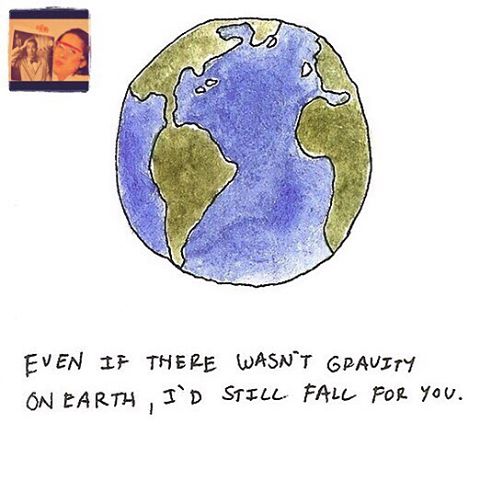 EVEN IF THERE WASN'T GRAVITY
ON EARTH, I'D STILL FALL FOR YOU.